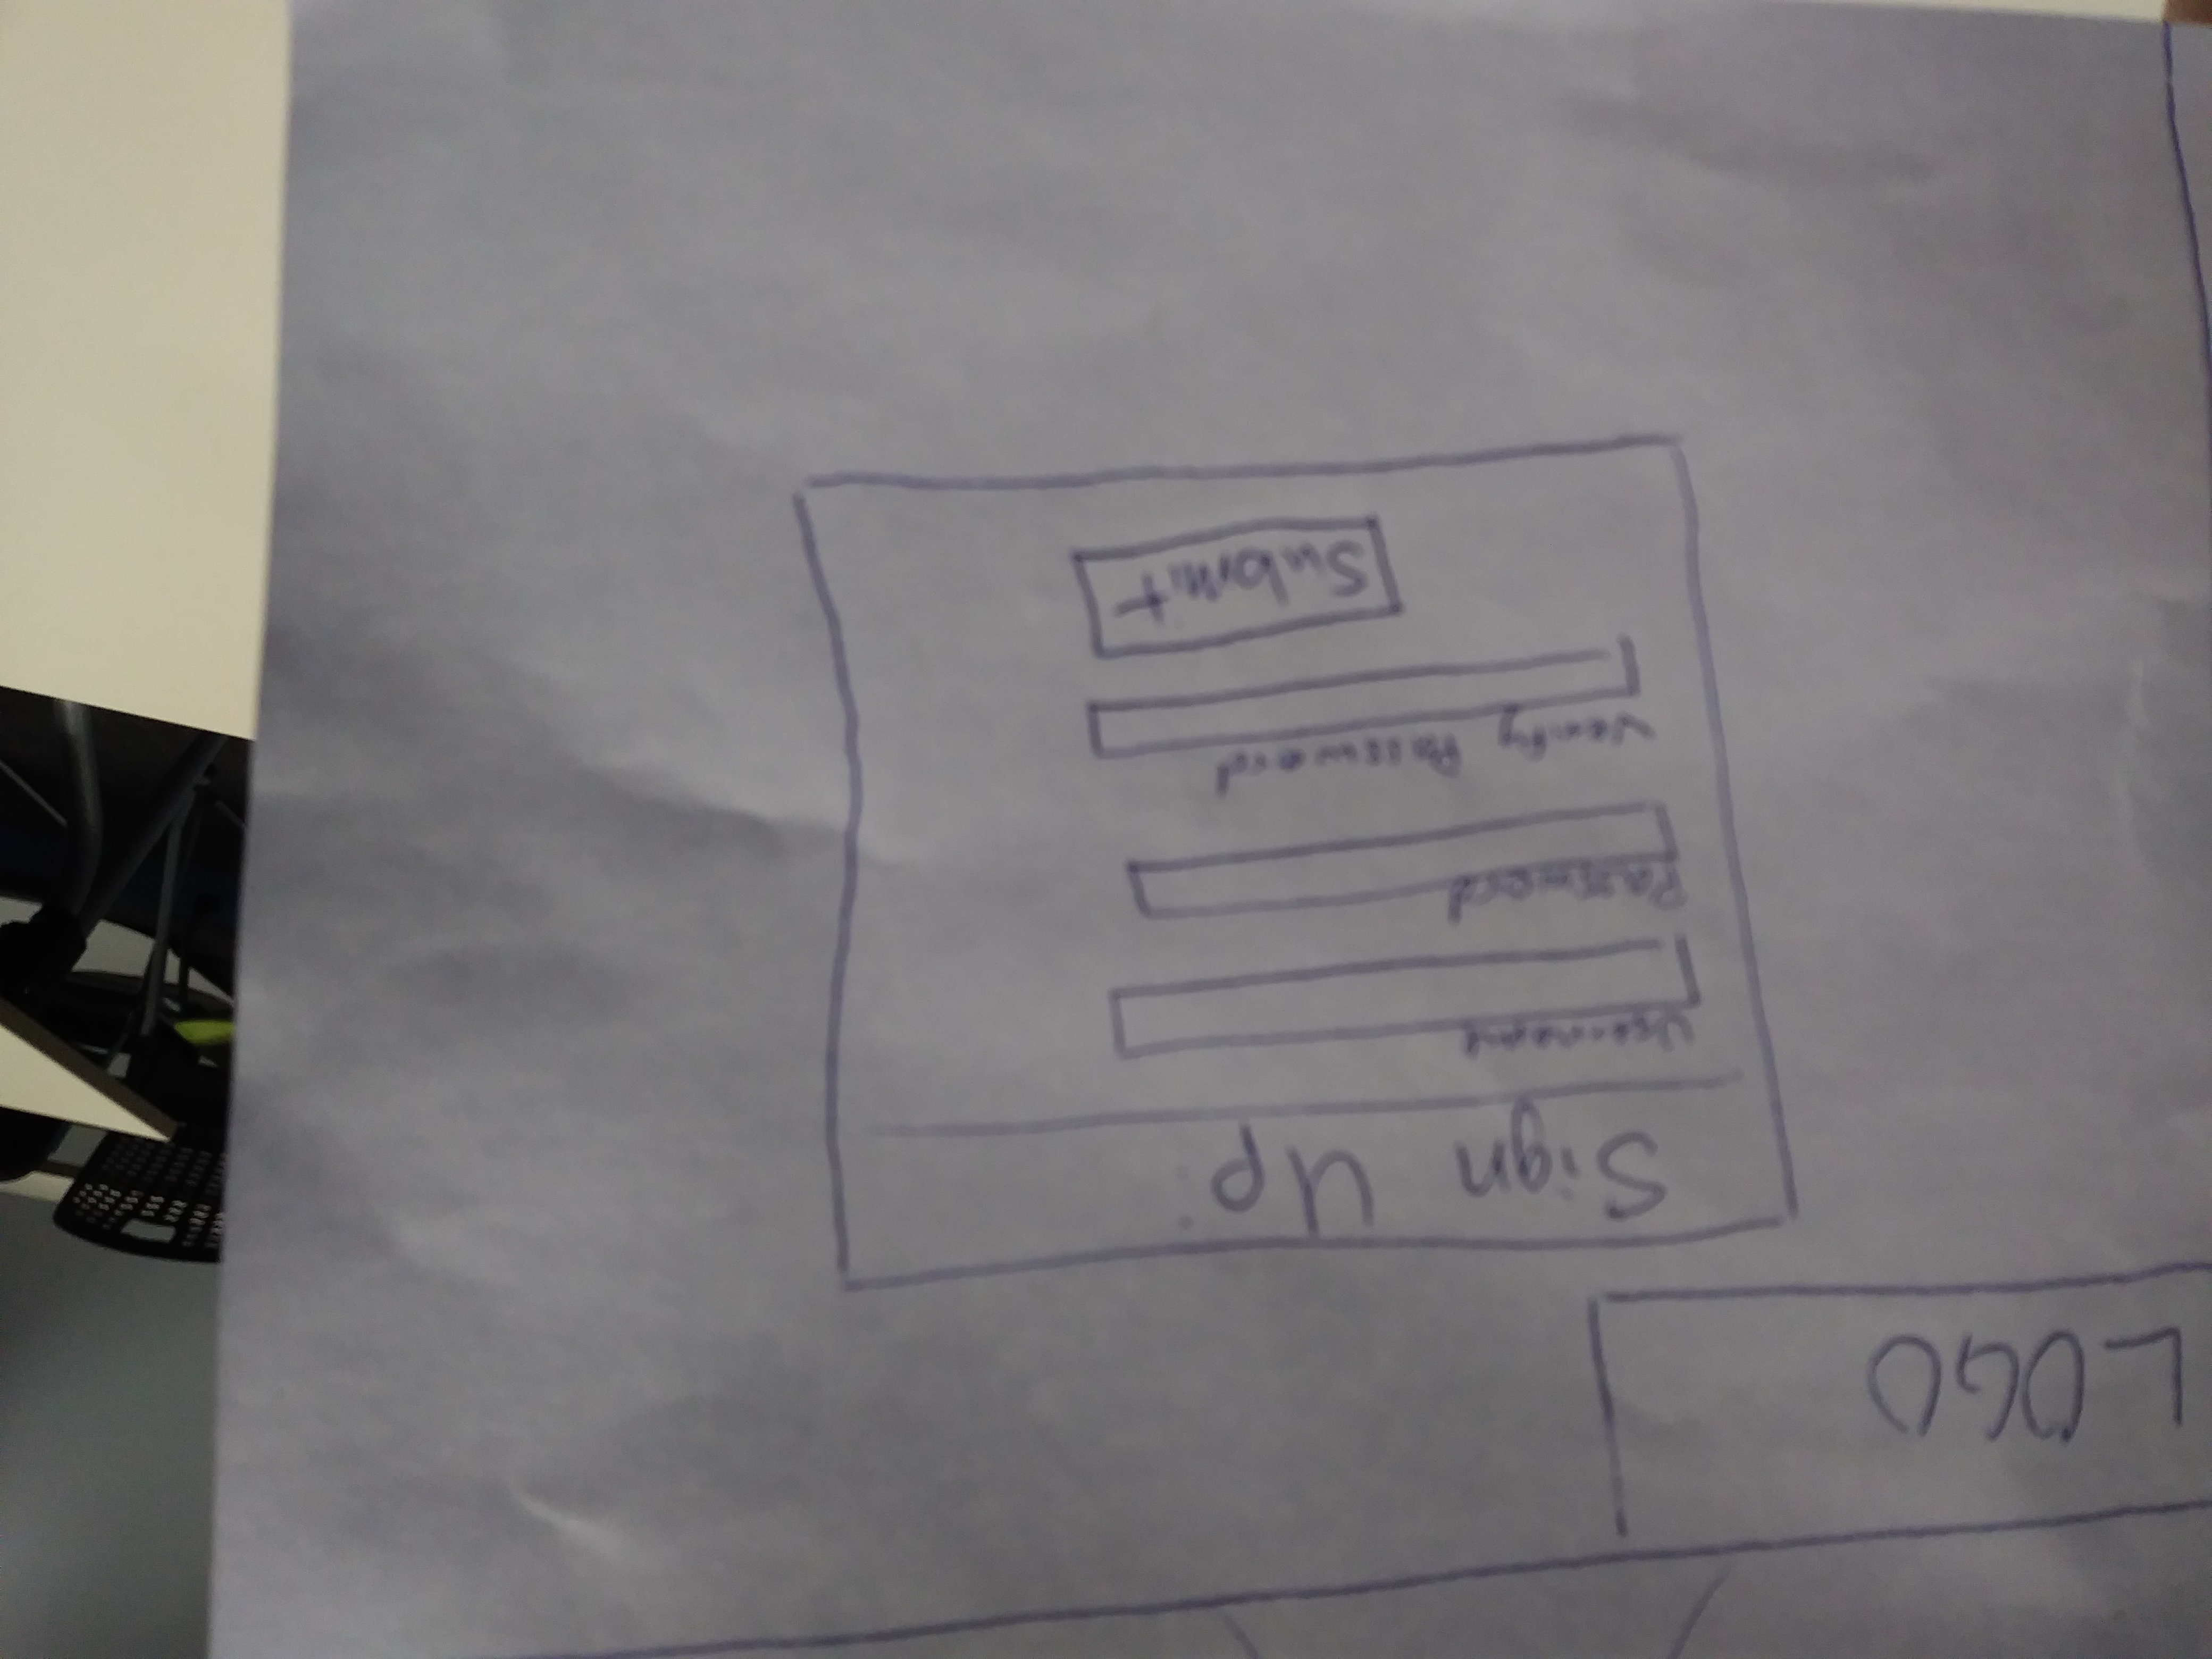 LOGO
Sign Up:
Username
Password
Verify Password
Submit